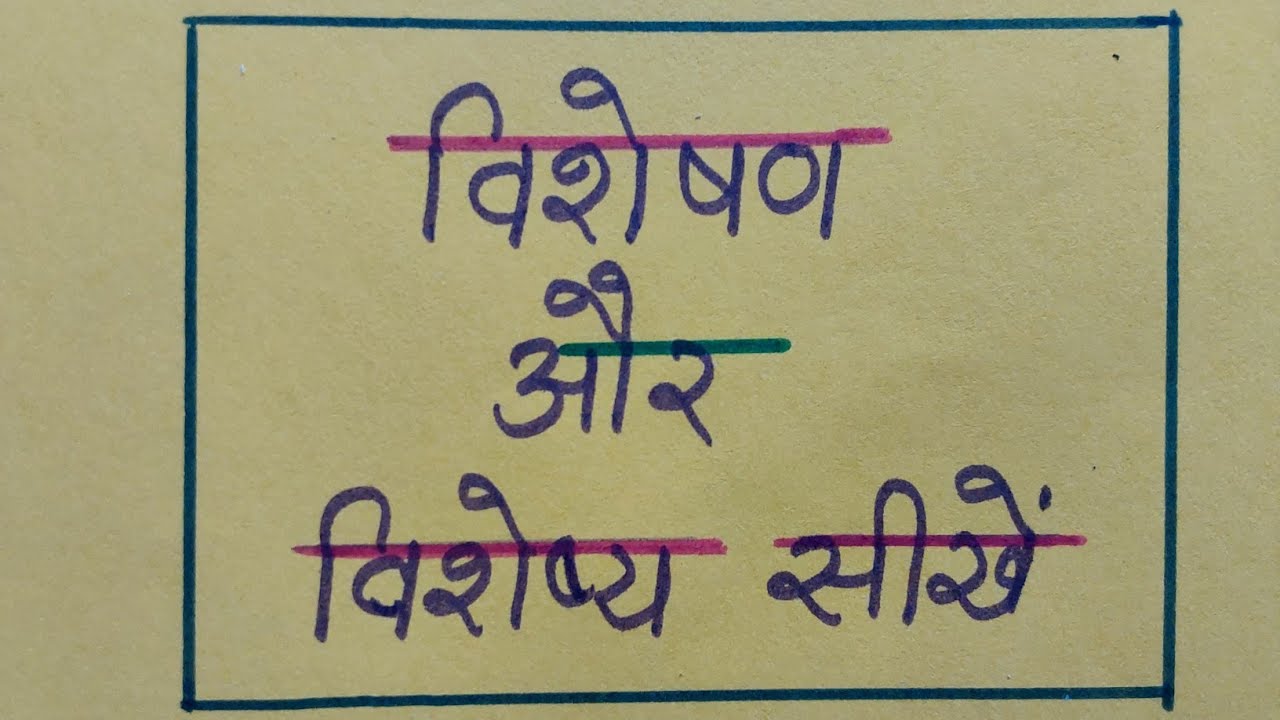 विशेषण
और
विशेष्य सीखें